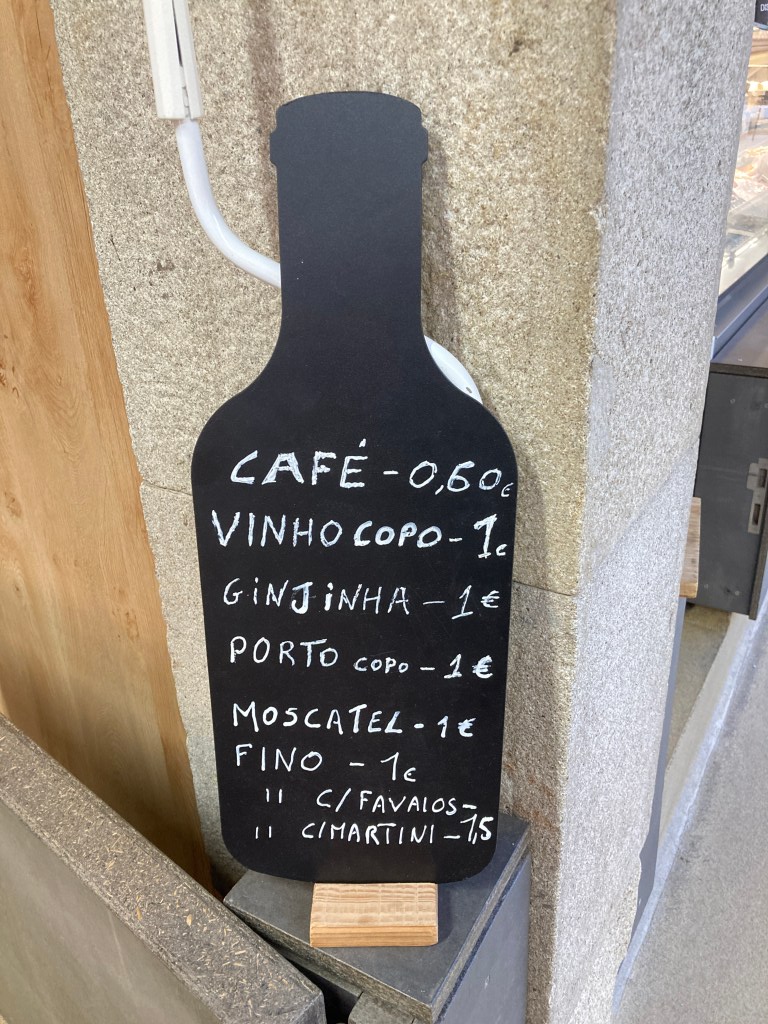 CAFÉ - 0,60€
VINHO COPO - 1€
GINJINHA - 1€
PORTO COPO - 1€
MOSCATEL - 1€
FINO - 1€
" C/FAVAIOS -
" C/MARTINI - 1,5